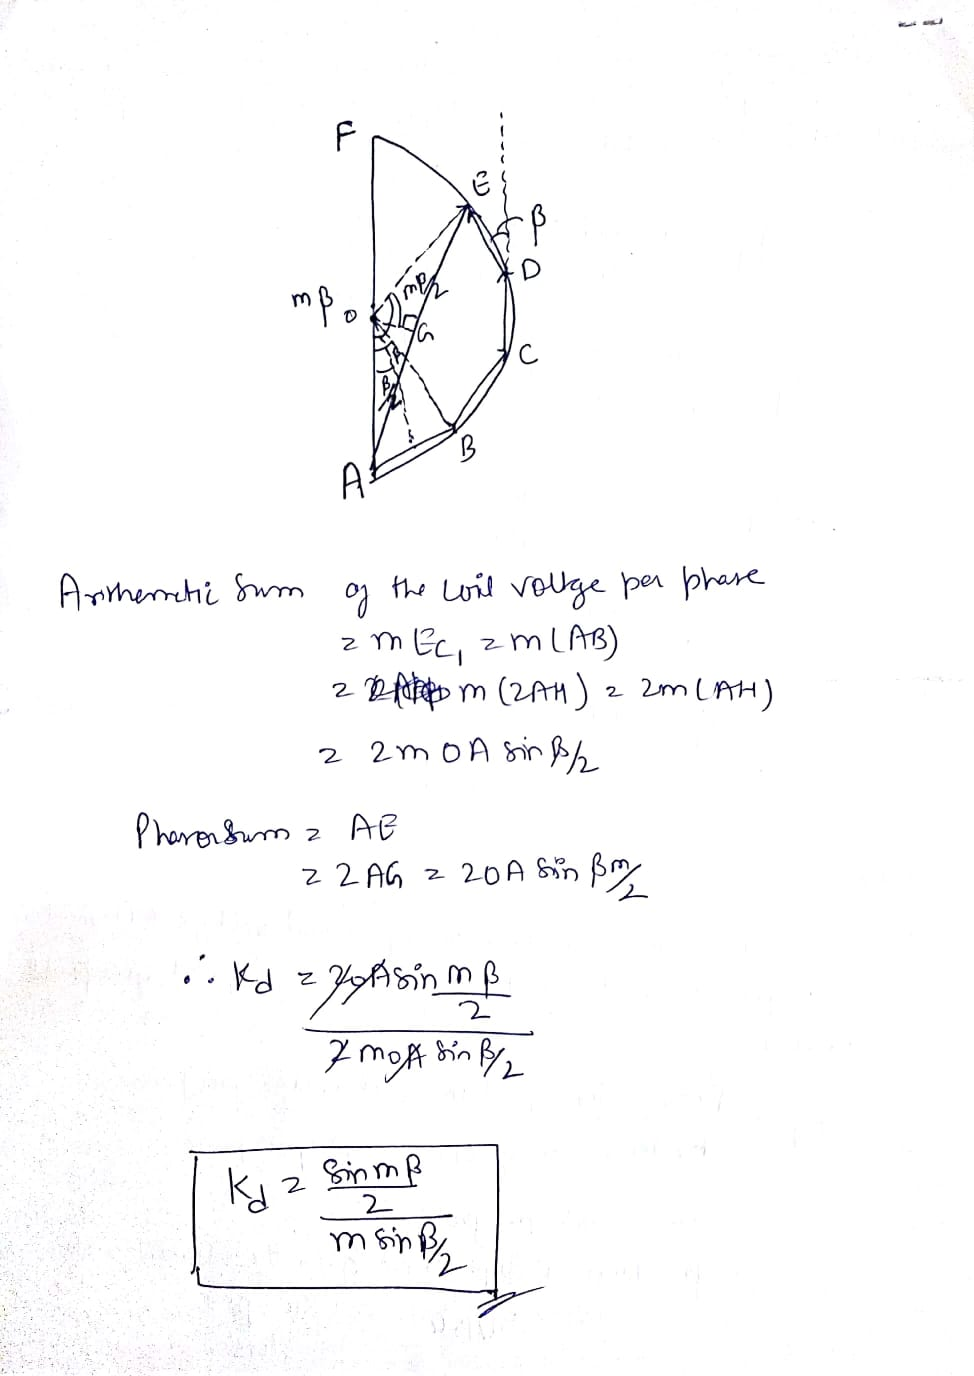 F
E
β
D
mβ
O
mβ/2
G
C
β
β/2
B
A
Arithemetic Sum of the Coil voltge per phase
= m Ec₁ = m (AB)
= m (2AH) = 2m (AH)
= 2m OA sin β/2
Phasor Sum = AE
= 2 AG = 2OA sin βm/2
∴ Kd = 2OA sin mβ/2
2 mOA sin β/2
Kd = sin mβ/2
m sin β/2